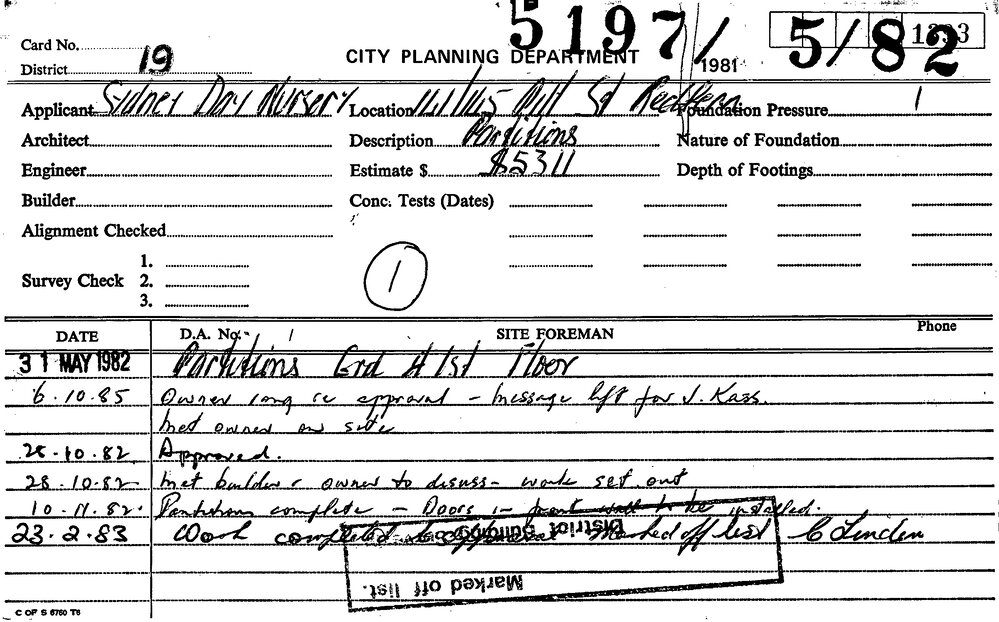 5197/ 5/82
1333
Card No.
District 19
CITY PLANNING DEPARTMENT
1981
Applicant Sydney Day Nursery Location Pitt St Redfern Foundation Pressure
Architect Description Partitions Nature of Foundation
Engineer Estimate $ $5311 Depth of Footings
Builder Conc. Tests (Dates)
Alignment Checked
1.
Survey Check 2.
3.
1
DATE D.A. No. SITE FOREMAN Phone
31 MAY 1982 Partitions Grd & 1st Floor
6.10.85 Owner rang re approval - message left for J. Kass
met owner on site
28.10.82 Approved.
28.10.82 met builder & owner to discuss - work set out
10.11.82. Partitions complete - Doors in front wall to be installed.
23.2.83 Work completed Marked off list C Linden
District Building
Marked off list.
C OF S 6760 T6